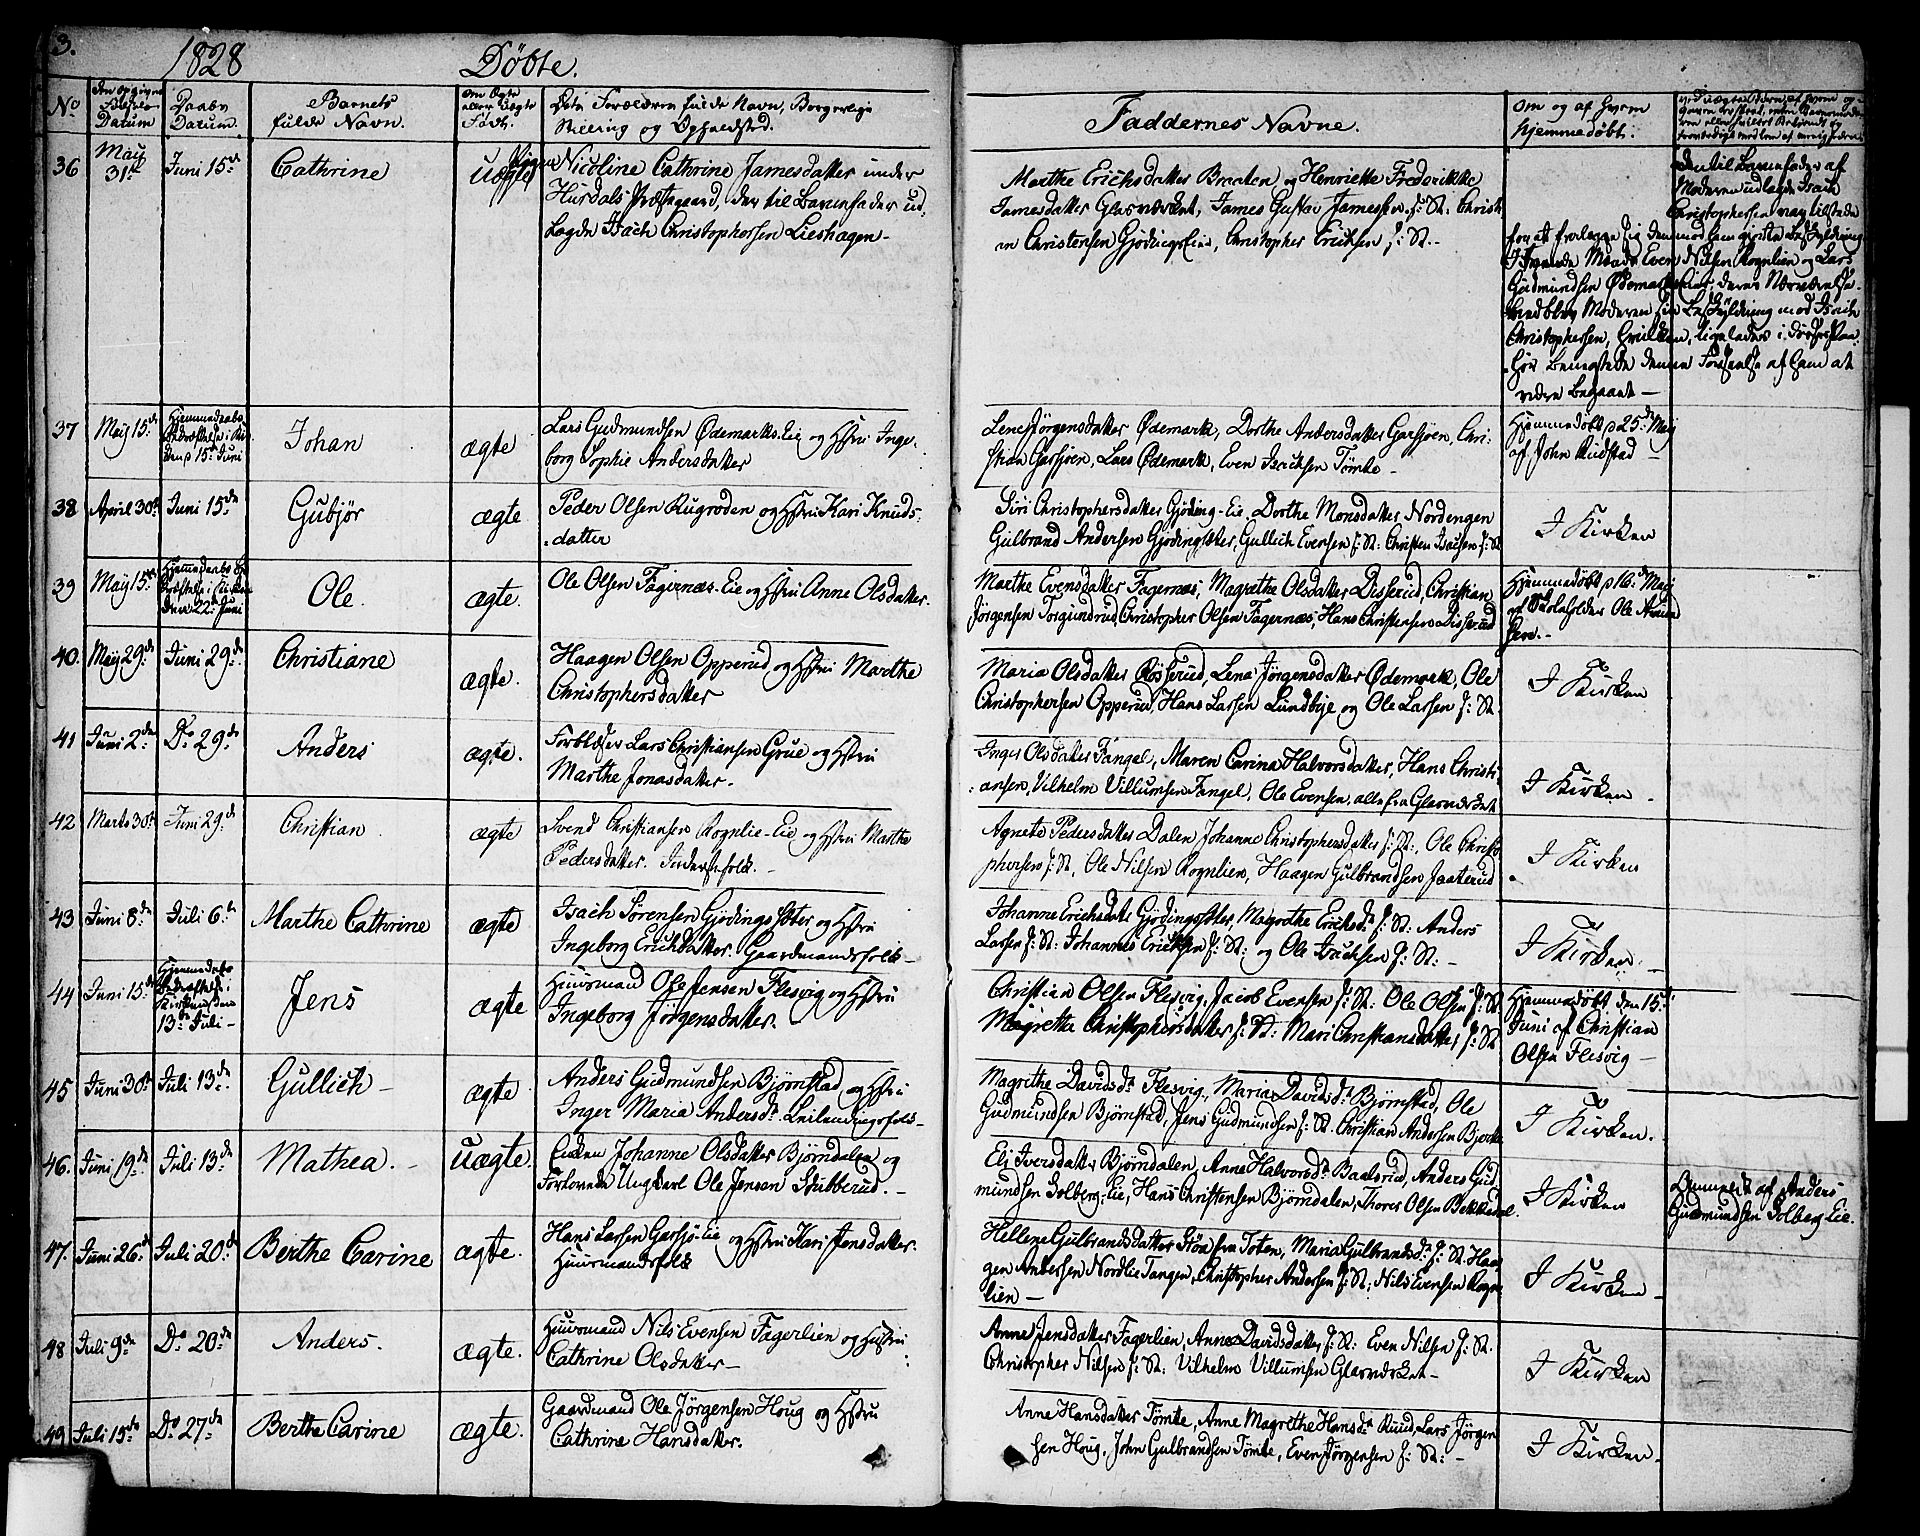 3.
1828 Døbte.
No
Daabs Datum.
Barnets fulde Navn.
Faddernes Navne.
Om og af hvem hjemmedøbt.
36 May 31te Juni 15de Cathrine uægte Nicoline Cathrine Jamesdatter under
Hurdals Præstegaard, der til Barnefader ud-
lagde Isach Christophersen Lieshagen
Marthe Erichsdatter Braaten og Henriette Frederikke
Jamesdatter Glasværket, James Gustav Jamessen s: St: Christi
Christensen Gjødings Eie, Christopher Erichsen s: St.
Den til Barnefader af
Moderen udlagde Isach
Christophersen
Even Nilsen Rognlien og Lars
Gudmundsen Ødemarks Eie, i deres Nærværelse
Moderen sin Beskyldning mod Isach
Christophersen,
37 May 15de Juni Johan ægte Lars Gudmundsen Ødemarks-Eie og Hstru Inge-
borg Sophie Andersdatter
Lene Jørgensdatter Ødemark, Dorthe Andersdatter Garsjøen, Chri-
stian Garsjøen, Lars Ødemark, Even Isachsen Tømte
Hjemmedøbt p 25de May
af John Rudstad
38 April 30te Juni 15de Gubjør ægte Peder Olsen Rugroden og Hstru Kari Knuds-
datter
Siri Christophersdatter Gjøding-Eie, Dorthe Monsdatter Nordengen
Gulbrand Andersen Gjødingsæter, Gullich Evensen s: St: Christen Isachsen s: St
I Kirken
39 May 15de Ole ægte Ole Olsen Fagernæs-Eie og Hstru Anne Olsdatter.
Marthe Evensdatter Fagernæs, Magrethe Olsdatter Disserud, Christian
Jørgensen Torgundrud, Christopher Olsen Fagernæs, Hans Christensen Disserud
Hjemmedøbt p 16de May
af Skoleholder Ole
40. May 29de Juni 29de Christiane ægte. Haagen Olsen Opperud og Hstru Marthe
Christophersdatter
Maria Olsdatter Røsserud, Lena Jørgensdatter Ødemark, Ole
Christophersen Opperud, Hans Larsen Lundbye og Ole Larsen s: St.
I Kirken
41 Juni 2de Do 29de Anders ægte. Forblæser Lars Christiansen Grue og Hstru
Marthe Jonasdatter.
Inger Olsdatter Fangel, Maren Carina Halvorsdatter, Hans Christi-
ansen, Vilhelm Villumsen Fangel, Ole Evensen, alle fra Glasværket
I Kirken
42 Marts 30te Juni 29de Christian ægte Svend Christiansen Rognlie-Eie og Hstru Marthe
Pedersdatter. Inderstfolk.
Agnete Pedersdatter Dalen, Johanne Christophersdatter s: St:, Ole Christo-
phersen s: St, Ole Nilsen Rognlien, Haagen Gulbrandsen Jaaterud
I Kirken
43 Juni 8de Juli 6te Marthe Cathrine ægte Isach Sørensen Gjødingsæter og Hstru
Ingeborg Erichsdatter. Gaardmandsfolk
Johanne Erichsdatr Gjødingsæter, Magrethe Erichsdr s: St: Anders
Larsen s: St: Johannes Erichsen s: St: og Ole Isachsen s: St:
I Kirken
44 Juni 15de Kirken den 13de Juli Jens ægte Huusmand Ole Jensen Flesvig og Hstru
Ingeborg Jørgensdatter.
Christian Olsen Flesvig, Jacob Evensen s: St: Ole Olsen s: St
Magrethe Christophersdatter s: St: Mari Christiansdatter s: St
Hjemmedøbt den 15de
Juni af Christian
Olsen Flesvig
45 Juni 30te Juli 13de Gullich ægte Anders Gudmundsen Bjørnstad og Hstru
Inger Maria Andersdr. Leilendingsfolk
Magrethe Davidsdr Flesvig, Maria Davidsdr Bjørnstad, Ole
Gudmundsen Bjørnstad, Jens Gudmundsen s: St. Christian Andersen Bjerke
I Kirken.
46. Juni 19de Juli 13de Mathea. uægte. Enken Johanne Olsdatter Bjørndalen og
Forlovede Ungkarl Ole Jensen Stubberud.
Eli Iversdatter Bjørndalen, Anne Halvorsdr Baalsrud, Anders Gud-
mundsen Solberg-Eie, Hans Christensen Bjørndalen, Thores Olsen Bekkedal.
I Kirken
Anmeldt af Anders
Gudmundsen Solberg Eie.
47. Juni 26de Juli 20de Berthe Carine ægte. Hans Larsen Garsjø-Eie og Hstru Kari Jensdatter.
Huusmandsfolk
Hellene Gulbrandsdatter Støa fra Toten, Maria Gulbrandsdr s: St. Haa-
gen Andersen Nordlie Tangen, Christopher Andersen s: St: Nils Evensen Rogn-
lien
I Kirken
48 Juli 9de Do 20de Anders. ægte. Huusmand Nils Evensen Fagerlien og Hustru
Cathrine Olsdatter
Anne Jensdatter Fagerlien, Anne Davidsdatter s: St: Even Nilsen s: St.
Christopher Nilsen s: St: Vilhelm Villumsen Glasværket
I Kirken
49 Juli 15de Do 27de Berthe Carine ægte. Gaardmand Ole Jørgensen Houg og Hstru
Cathrine Hansdatter.
Anne Hansdatter Tømte, Anne Magrethe Hansdr Ruud, Lars Jørgen-
sen Houg, John Gulbrandsen Tømte, Even Jørgensen s: St:
I Kirken.